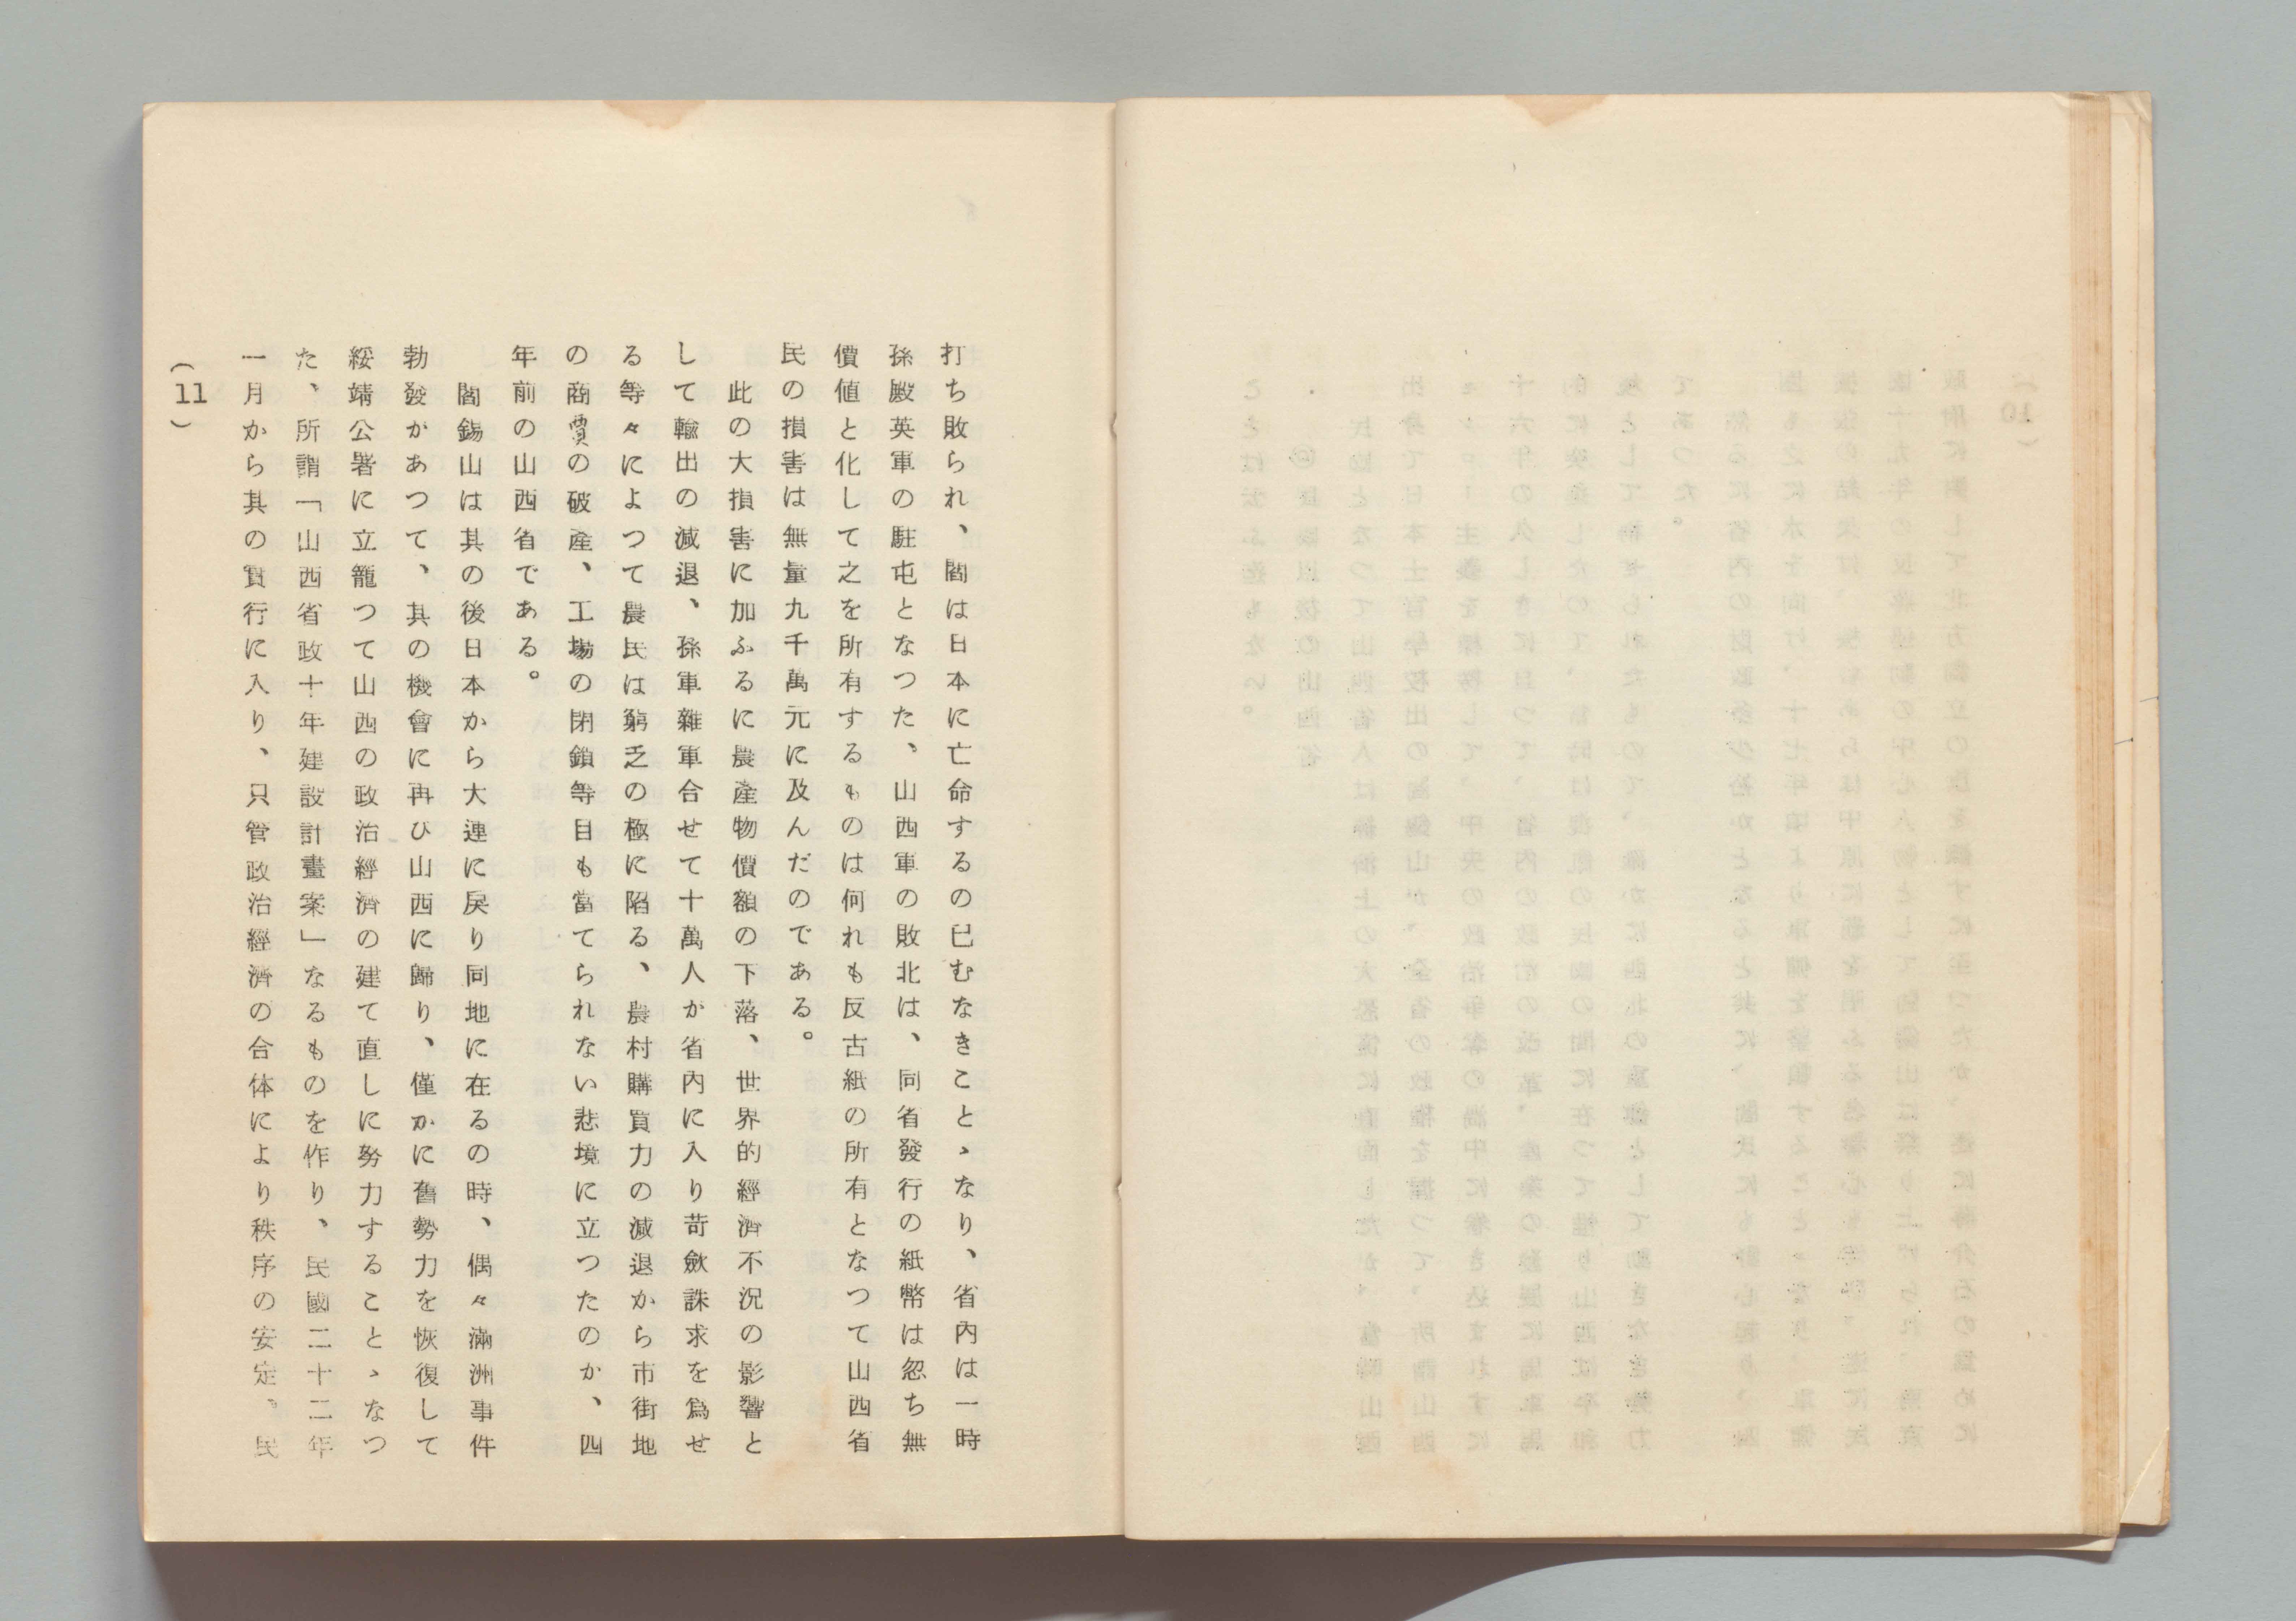 打ち敗られ、閻は日本に亡命するの已むなきことゝなり、省内は一時
孫殿英軍の駐屯となつた、山西軍の敗北は、同省發行の紙幣は忽ち無
價値と化して之を所有するものは何れも反古紙の所有となつて山西省
民の損害は無量九千萬元に及んだのである。
此の大損害に加ふるに農產物價額の下落、世界的經濟不況の影響と
して輸出の減退、孫軍雜軍合せて十萬人が省内に入り苛斂誅求を爲せ
る等々によつて農民は窮乏の極に陷る、農村購買力の減退から市街地
の商賈の破產、工場の閉鎖等目も當てられない悲境に立つたのか、四
年前の山西省である。
閻錫山は其の後日本から大連に戾り同地に在るの時、偶々滿洲事件
勃發があつて、其の機會に再び山西に歸り、僅かに舊勢力を恢復して
綏靖公署に立籠つて山西の政治經濟の建て直しに努力することゝなつ
た、所謂「山西省政十年建設計畫案」なるものを作り、民國二十二年
一月から其の實行に入り、只管政治經濟の合体により秩序の安定、民
(11)